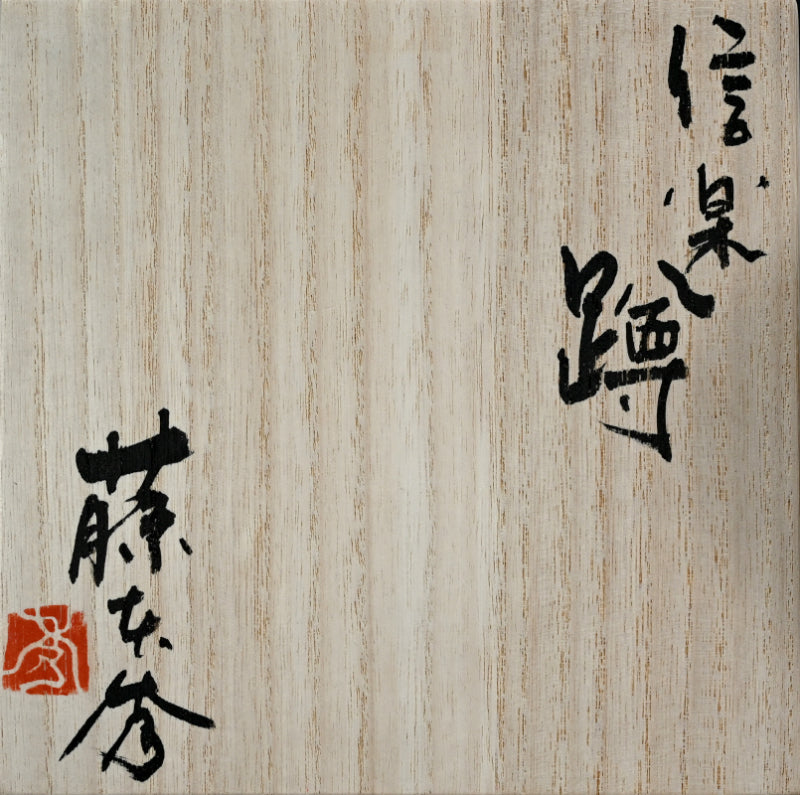 信楽
蹲
藤本秀